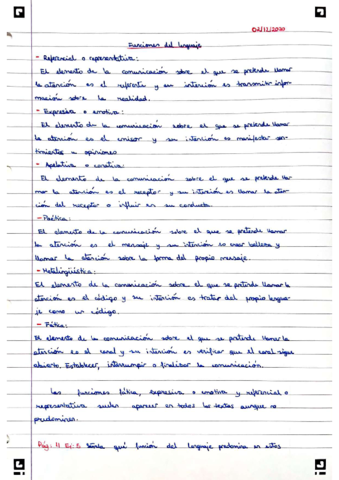 02/11/2020
Funciones del lenguaje
- Referencial o representativa:
El elemento de la comunicación sobre el que se pretende llamar
la atención es el referente y su intención es transmitir infor-
mación sobre la realidad.
- Expresiva o emotiva:
El elemento de la comunicación sobre el que se pretende llamar
la atención es el emisor y su intención es manifestar sen-
timientos u opiniones
- Apelativa o conativa:
El elemento de la comunicación sobre el que se pretende lla-
mar la atención es el receptor y su intención es llamar la aten-
ción del receptor o influir en su conducta.
- Poética:
El elemento de la comunicación sobre el que se pretende llamar
la atención es el mensaje y su intención es crear belleza y
llamar la atención sobre la forma del propio mensaje.
- Metalingüística:
El elemento de la comunicación sobre el que se pretende llamar la
atención es el código y su intención es tratar del propio lengua-
je como un código.
- Fática:
El elemento de la comunicación sobre el que se pretende llamar la
atención es el canal y su intención es verificar que el canal sigue
abierto. Establecer, interrumpir o finalizar la comunicación.
Las funciones fática, expresiva o emotiva y referencial o
representativa suelen aparecer en todos los textos aunque no
predominen.
Pág: 11 Ej: 2 Señala qué función del lenguaje predomina en estos